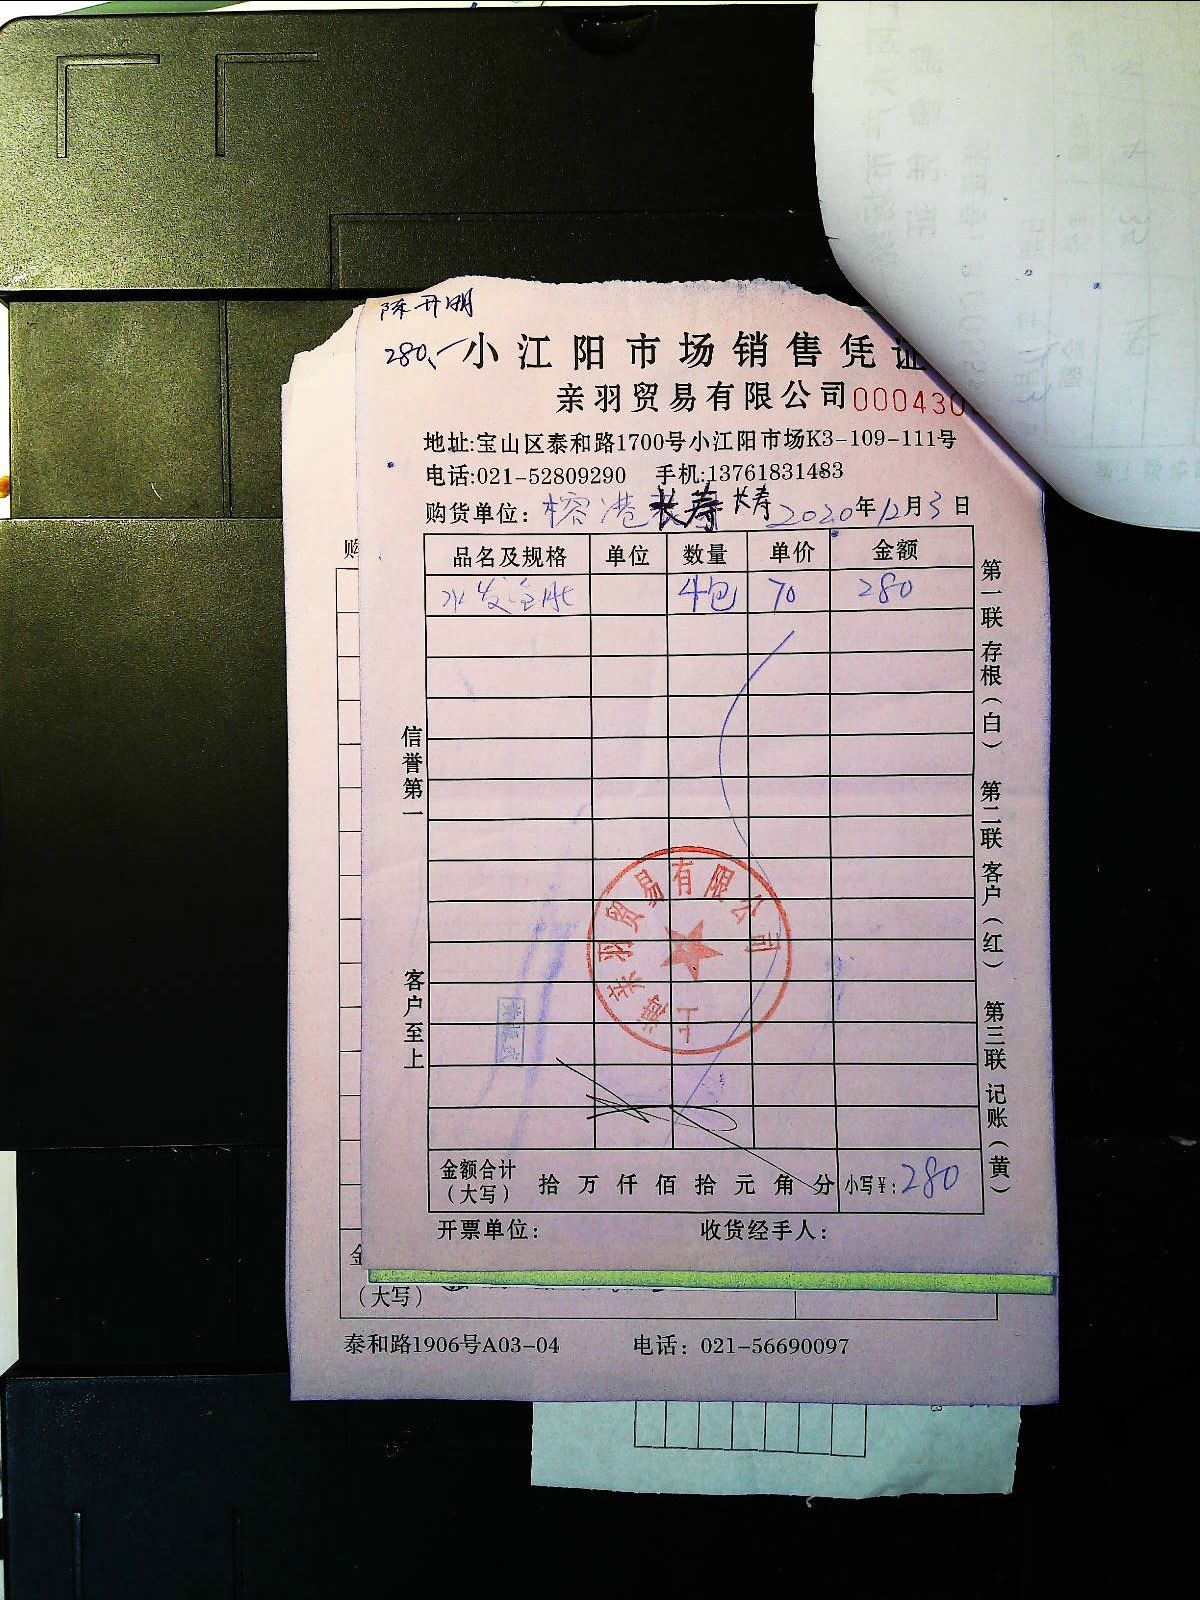 陈开明
280.一
小江阳市场销售凭证
亲羽贸易有限公司 000430
地址:宝山区泰和路1700号小江阳市场K3-109-111号
电话:021-52809290 手机:13761831483
购货单位: 榕港 长寿 长寿 2020年12月3日
品名及规格 单位 数量 单价 金额
水发 4包 70 280
第一联 存根(白) 第二联 客户(红) 第三联 记账(黄)
信誉第一
客户至上
上海亲羽贸易有限公司
金额合计(大写) 拾 万 仟 佰 拾 元 角 分 小写¥: 280
开票单位: 收货经手人:
购
金
(大写)
泰和路1906号A03-04 电话: 021-56690097